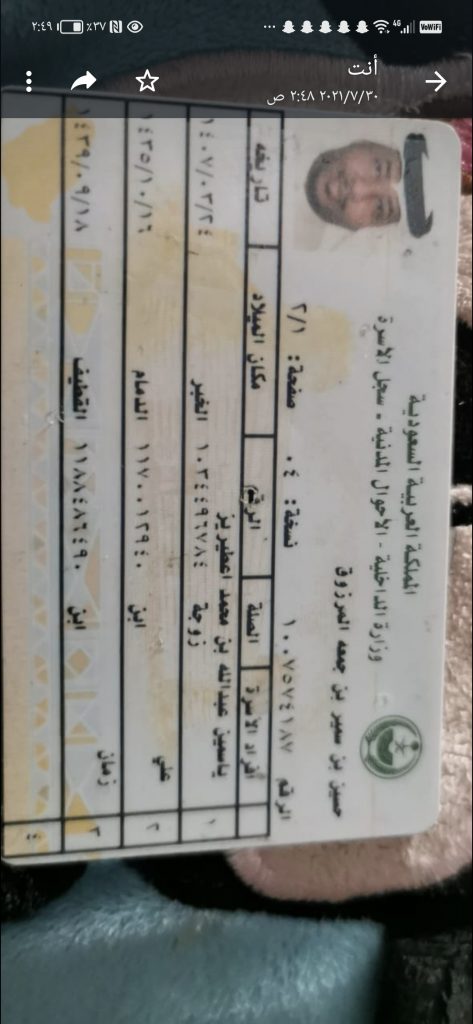 ٢:٤٩
٪٣٧
4G
VoWiFi
أنت
٢٠٢١/٧/٣٠ ٢:٤٨ ص
المملكة العربية السعودية
وزارة الداخلية - الأحوال المدنية - سجل الأسرة
حسين بن سمير بن جمعه المرزوق
الرقم ١٠٠٧٥٧٤١٨٧ نسخة: ٠٤ صفحة: ٢/١
أفراد الأسرة الصلة الرقم مكان الميلاد تاريخه
١ ياسمين عبدالله بن محمد اعطيريز
زوجة ١٠٣٤٤٩٦٧٨٤ الخبر ١٤٠٧/٠٣/٢٤
٢ علي ابن ١١٧٠٠١٢٩٤٠ الدمام ١٤٣٥/١٠/١٦
٣ زمان ابن ١١٨٨٤٨٦٤٩٠ القطيف ١٤٣٩/٠٩/١٨
٤